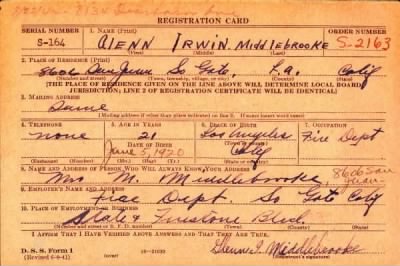 REGISTRATION CARD
SERIAL NUMBER 1. NAME (Print) ORDER NUMBER
S-164 GLENN IRWIN Middlebrooke S-2163
(First) (Middle) (Last)
2. PLACE OF RESIDENCE (Print)
8606 San Juan So Gate, L.A. Calif
(Number and street) (Town, township, village, or city) (County) (State)
[THE PLACE OF RESIDENCE GIVEN ON THE LINE ABOVE WILL DETERMINE LOCAL BOARD
JURISDICTION; LINE 2 OF REGISTRATION CERTIFICATE WILL BE IDENTICAL]
3. MAILING ADDRESS
Same
[Mailing address if other than place indicated on line 2. If same insert word same]
4. TELEPHONE 5. AGE IN YEARS 6. PLACE OF BIRTH 7. OCCUPATION
none 21 Los Angeles Fire Dept
DATE OF BIRTH (Town or county)
June 5, 1920 Calif
(Exchange) (Number) (Mo.) (Day) (Yr.) (State or country)
8. NAME AND ADDRESS OF PERSON WHO WILL ALWAYS KNOW YOUR ADDRESS 8606 San Juan
Mrs M. Middlebrooke
9. EMPLOYER'S NAME AND ADDRESS
Fire Dept So Gate Calif
10. PLACE OF EMPLOYMENT OR BUSINESS
State & Firestone Blvd.
(Number and street or R. F. D. number) (Town) (County) (State)
I AFFIRM THAT I HAVE VERIFIED ABOVE ANSWERS AND THAT THEY ARE TRUE.
D. S. S. Form 1
(Revised 6-9-41) (over) Glenn I. Middlebrooke